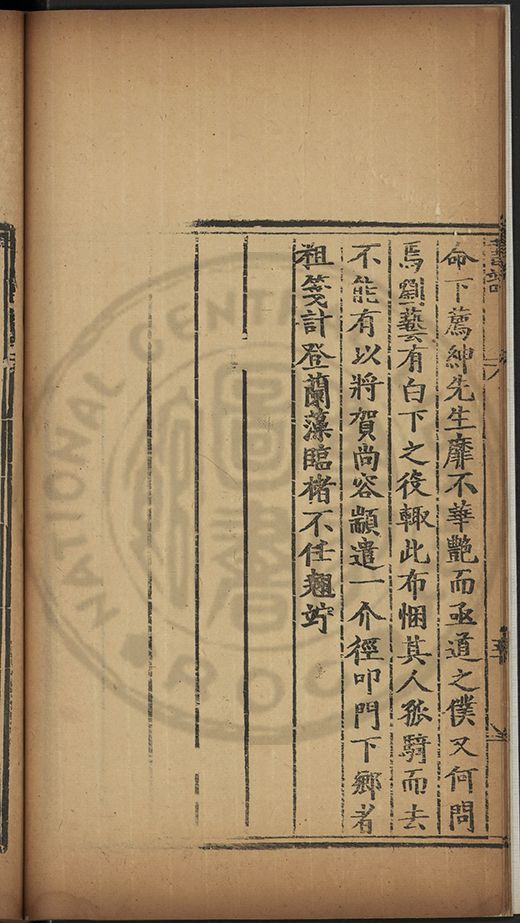 命下薦紳先生靡不華艷而亟道之僕又何問
焉劉藝有白下之役輒此布悃其人孤騎而去
不能有以將賀尚容顓遣一介徑叩門下鄉者
粗箋計登蘭藻臨楮不任翹竚
NATIONAL CENT